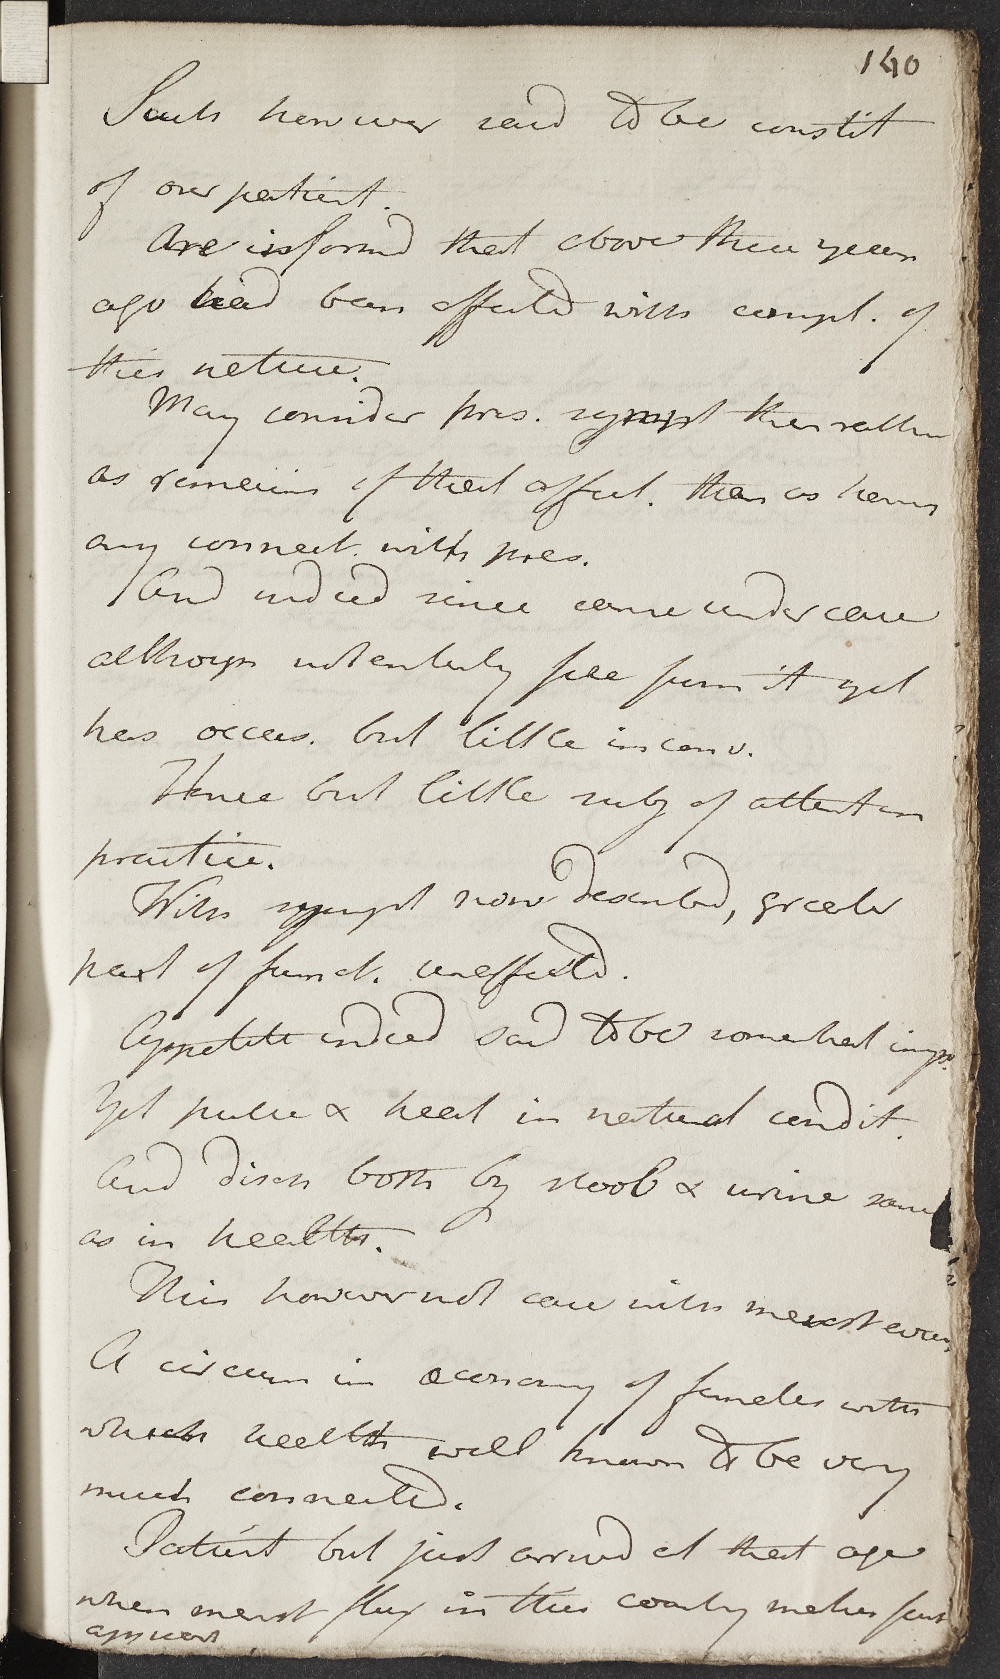 140
Such however said to be constit
of our patient.
Are informd that above three years
ago had been affected with compl. of
this nature.
May consider pres. sympt then rather
as remains of that affect. than as having
any connect. with pres.
And indeed since came under care
although not entirely free from it yet
has occas. but little inconv.
Hence but little subj of attent in
practice.
With sympt now described, greater
part of funct. unaffected.
Appetite indeed said to be somewhat imp.
Yet pulse & heat in natural condit.
And disch both by stool & urine same
as in health.
This however not case with menst evac
A circum in oeconomy of females with
which health well known to be very
much connected.
Patient but just arrived at that age
when menst flux in this country makes first
appear